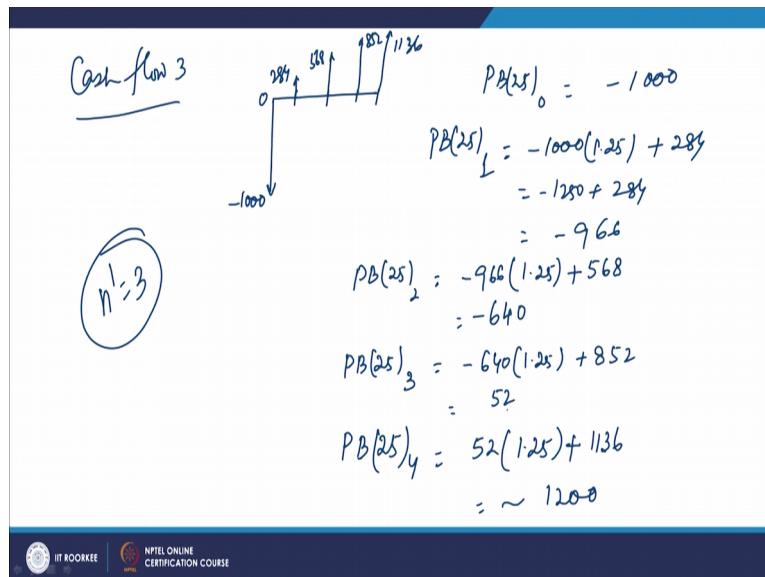 Cash flow 3
0
284
568
852
1136
-1000
n' = 3
PB(25)0 = -1000
PB(25)1 = -1000(1.25) + 284
= -1250 + 284
= -966
PB(25)2 = -966(1.25) + 568
= -640
PB(25)3 = -640(1.25) + 852
= 52
PB(25)4 = 52(1.25) + 1136
= ~ 1200
IIT ROORKEE
NPTEL ONLINE
CERTIFICATION COURSE